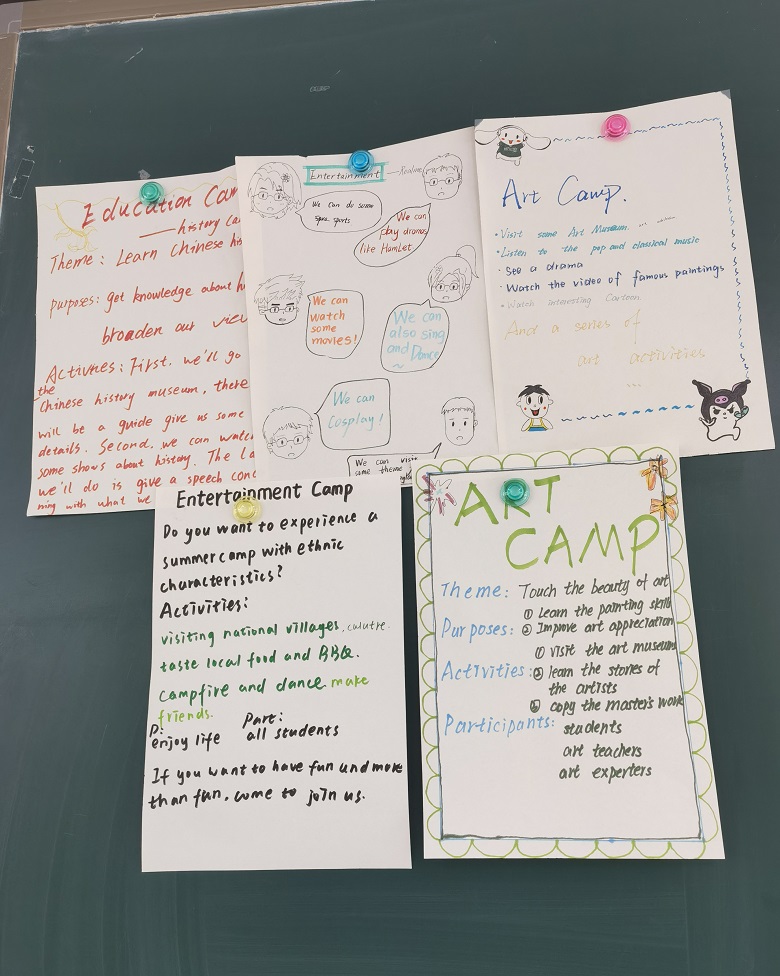 Education Cam
— history Ca
Theme: Learn Chinese hi
Purposes: get knowledge about h
broaden our view
Activities: First, we'll go
the
Chinese history museum, there
will be a guide give us some
details. Second, we can watch
some shows about history. The La
we'll do is give a speech con
ning with what we
Entertainment
We can do some
sports
We can
play drama
like Hamlet
We can
watch
some
movies!
We can
also sing
and Dance
~
We can
Cosplay!
We can visit
some theme
Art Camp.
• Visit some Art Museum.
• Listen to the pop and classical music
• See a drama
• Watch the video of famous paintings
• Watch interesting Cartoon.
And a series of
art activities
...
Entertainment Camp
Do you want to experience a
summer camp with ethnic
characteristics?
Activities:
visiting national villages, calutre.
taste local food and BBQ.
Campfire and dance make
friends.
P:
enjoy life
Part:
all students
If you want to have fun and more
than fun, come to join us.
ART
CAMP
Theme: Touch the beauty of art
① Learn the painting skill
Purposes: ② Improve art appreciation
① visit the art museum
Activities: ② learn the stories of
the artists
③ copy the master's work
Participants: students
art teachers
art experters